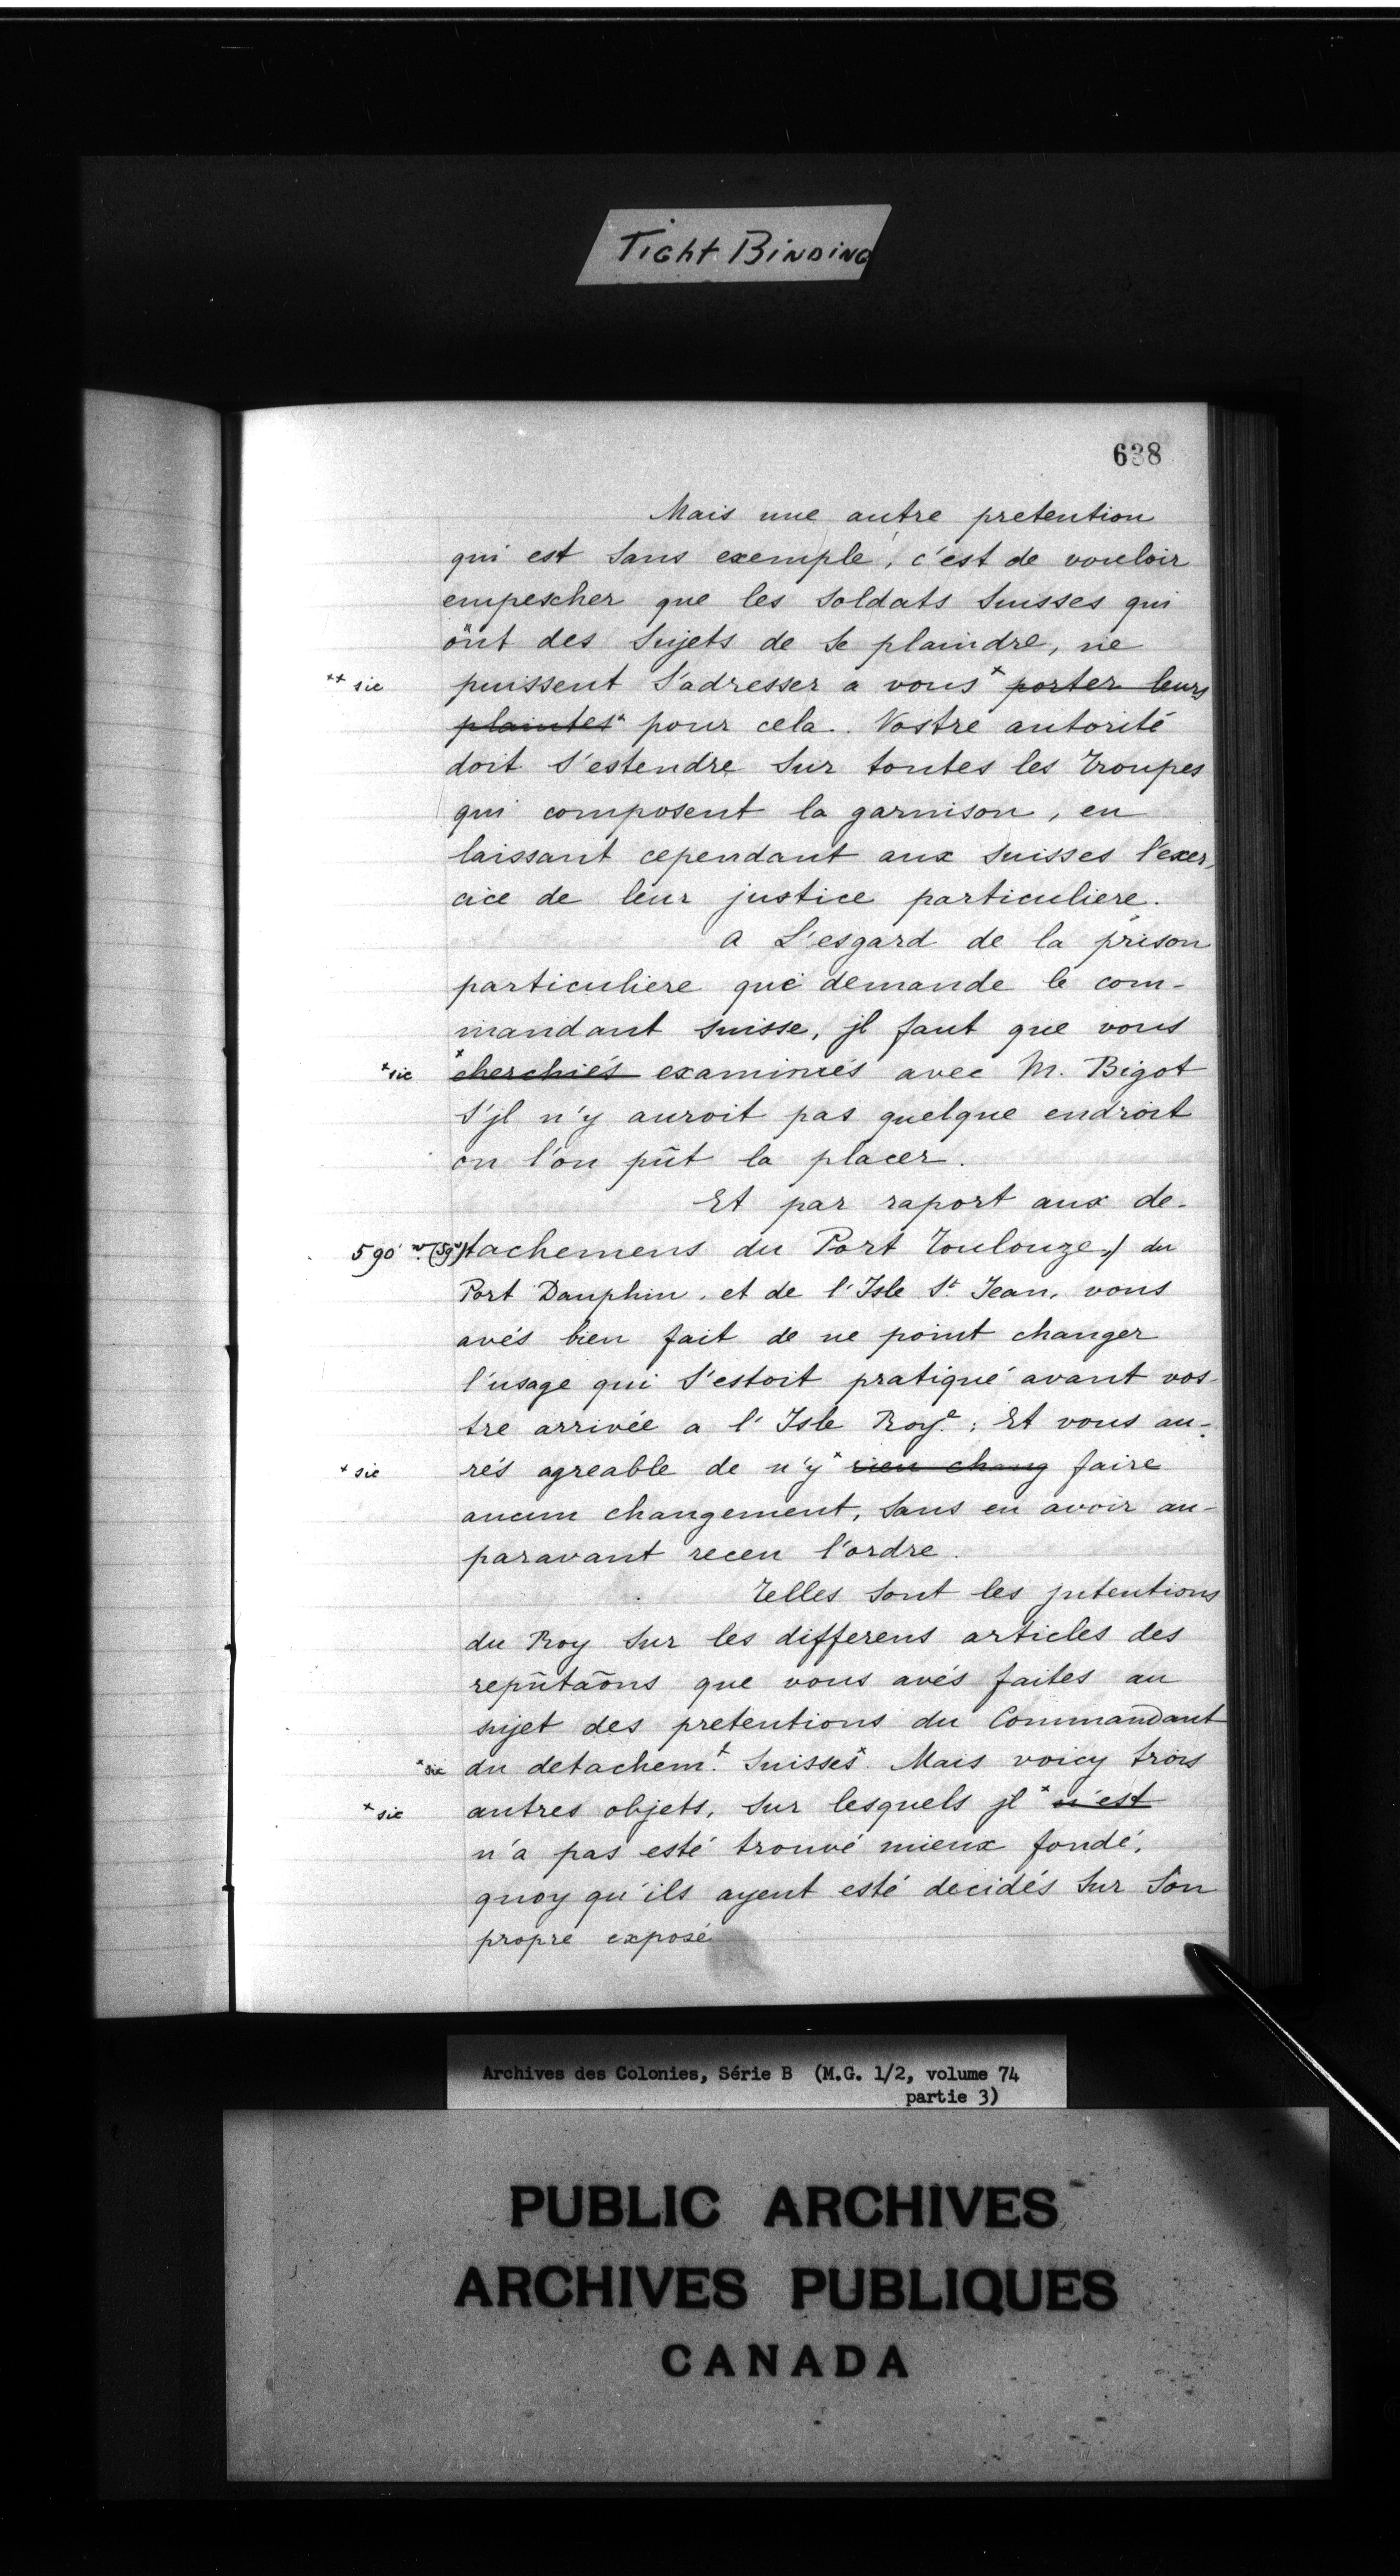 Tight Binding
638
Mais une autre pretention
qui est sans exemple, c'est de vouloir
empescher que les soldats suisses qui
ont des sujets de se plaindre, ne
** sic puissent s'adresser a vous * porter leurs
plaintes * pour cela. Vostre autorité
doit s'estendre sur toutes les troupes
qui composent la garnison, en
laissant cependant aux suisses l'exer-
cice de leur justice particuliere.
a L'esgard de la prison
particuliere que demande le com-
mandant suisse, jl faut que vous
*sic *cherchiés examiniés avec M. Bigot
s'jl n'y auroit pas quelque endroit
ou l'on pût la placer.
Et par raport aux de-
590 tachemens du Port Toulouze,/ du
Port Dauphin, et de l'Isle St. Jean, vous
avés bien fait de ne point changer
l'usage qui s'estoit pratiqué avant vos-
tre arrivée a l'Isle Roye.; Et vous au-
* sic rés agreable de n'y * rien chang faire
aucun changement, sans en avoir au-
paravant receu l'ordre.
Telles sont les jntentions
du Roy sur les differens articles des
repñtaõns que vous avés faites au
sujet des pretentions du Commandant
*sic du detachemt. suisses*. Mais voicy trois
* sic autres objets, sur lesquels jl * n'est
n'a pas esté trouvé mieux fondé,
quoy qu'ils ayent esté decidés sur son
propre exposé
Archives des Colonies, Série B (M.G. 1/2, volume 74
partie 3)
PUBLIC ARCHIVES
ARCHIVES PUBLIQUES
CANADA